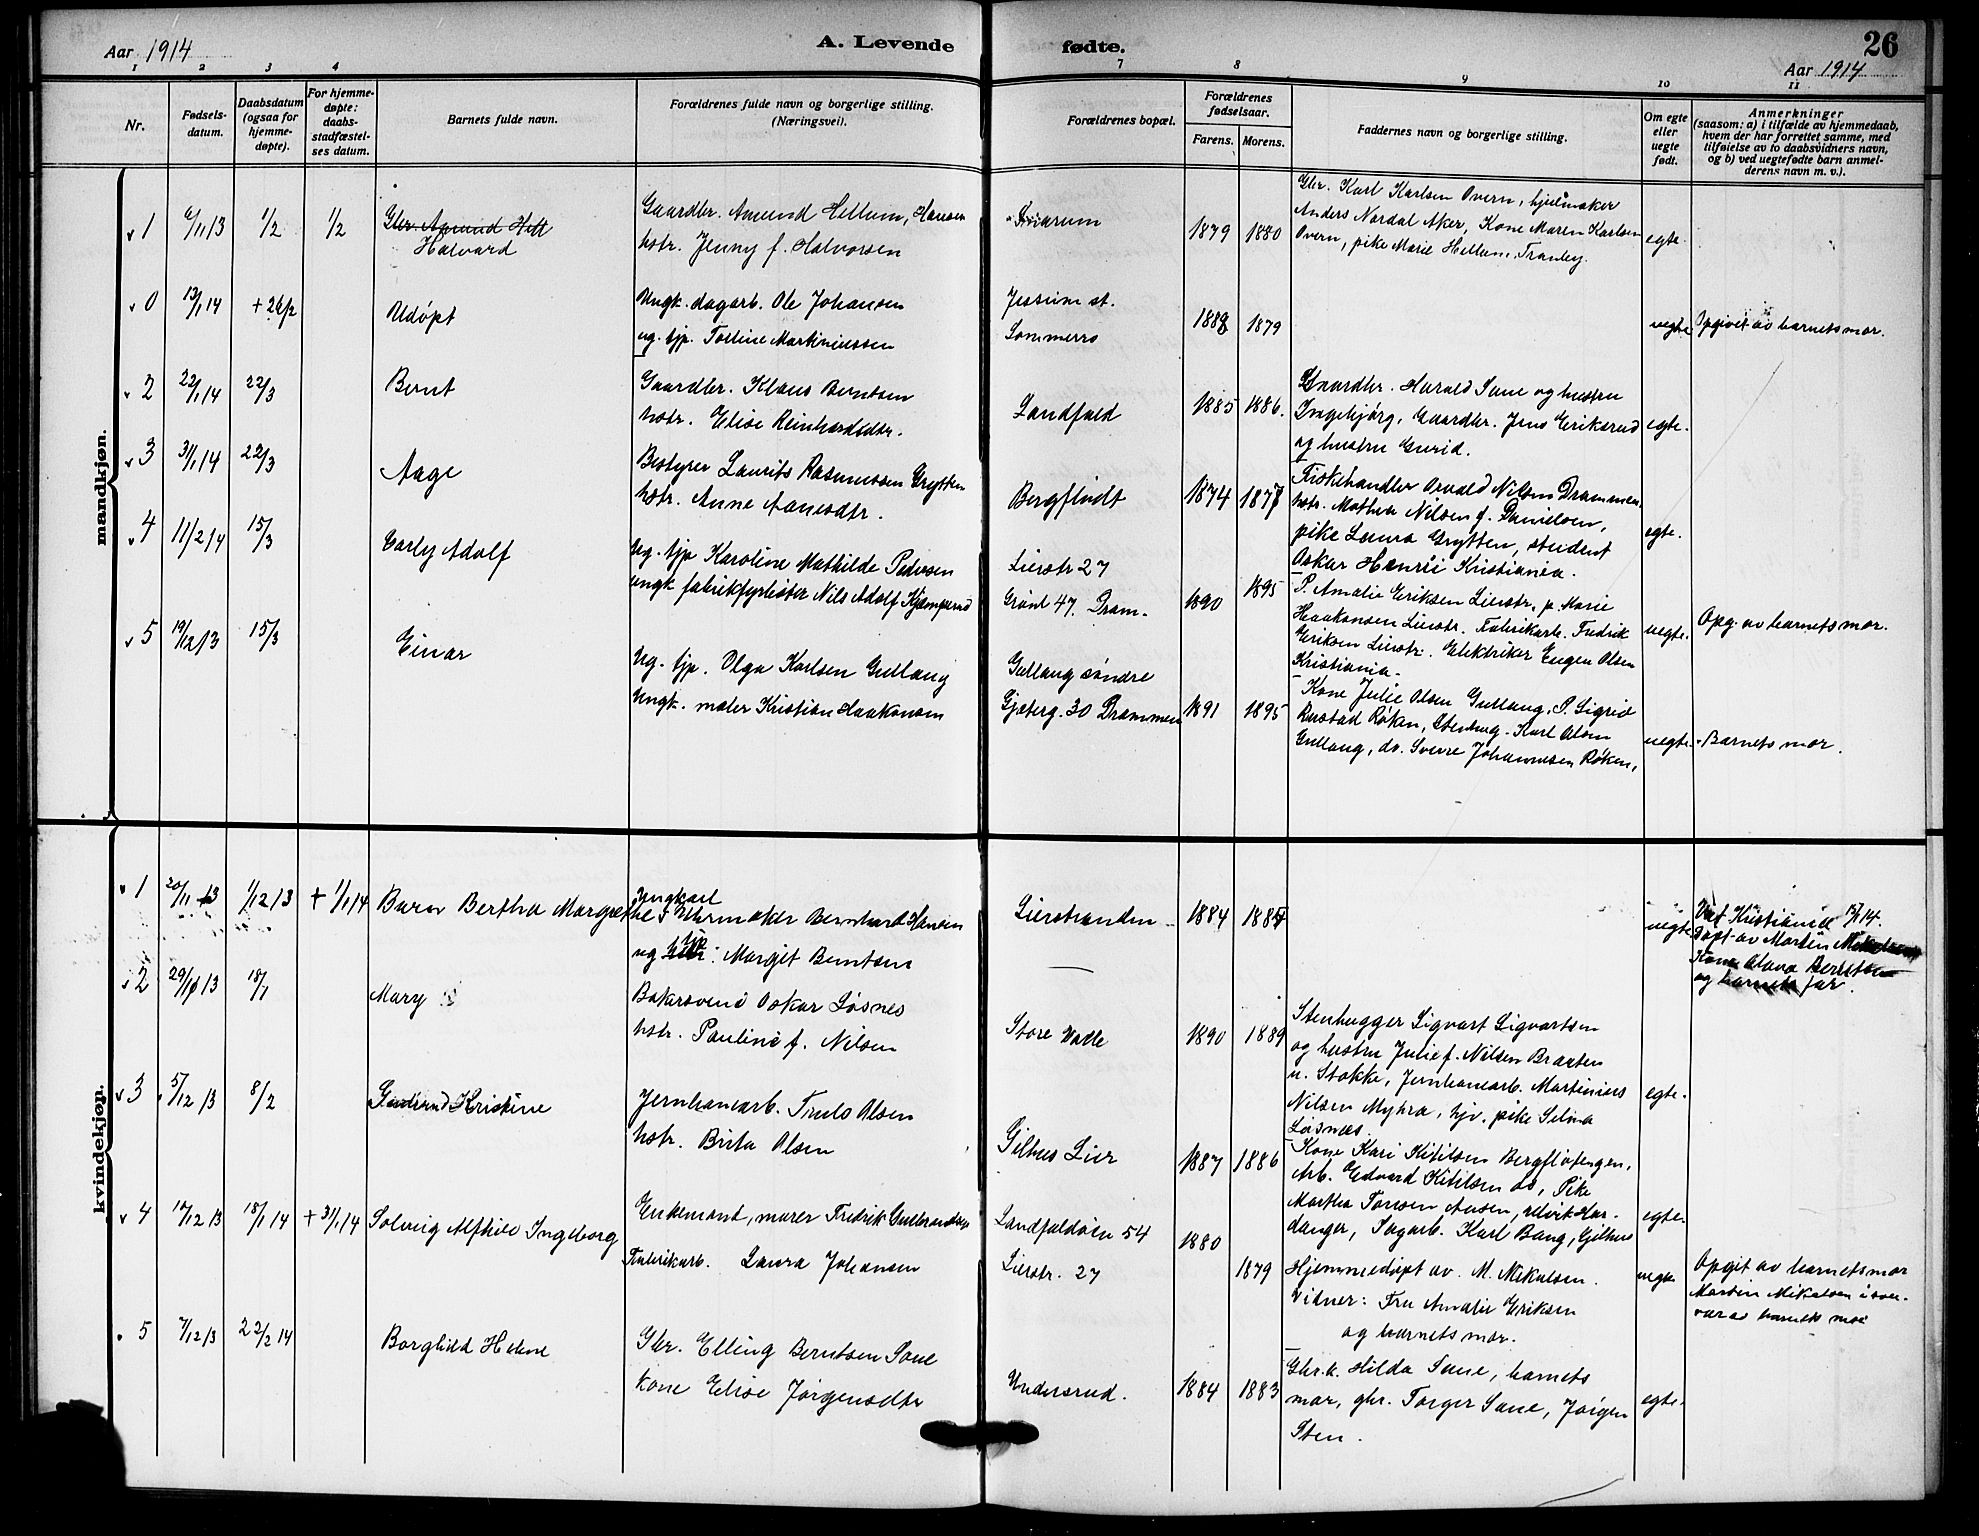 Aar 1914
A. Levende
fødte.
26
Aar 1914
1 2 3 4 7 8 9 10 11
Nr.
Fødsels-
datum.
Daabsdatum
(ogsaa for
hjemme-
døpte).
For hjemme-
døpte:
daabs-
stadfæstel-
ses datum.
Barnets fulde navn.
Forældrenes fulde navn og borgerlige stilling.
(Næringsvei).
Forældrenes bopæl.
Forældrenes
fødselsaar.
Farens. Morens.
Faddernes navn og borgerlige stilling.
Om egte
eller
uegte
født.
Anmerkninger
(saasom: a) i tilfælde av hjemmedaab,
hvem der har forrettet samme, med
tilføielse av to daabsvidners navn,
og b) ved uegtefødte barn anmel-
derens navn m. v.).
mandkjøn.
1 6/11 13 1/2 1/2
Gbr. Amund Hell
Halvard
Gaardbr. Amund Hellum, Hansen
hstr. Jenny f. Halvorsen
1879 1880
Gbr. Karl Karlsen Overn, hjulmaker
Anders Nordal Aker, Kone Maren Karlsen
Overn, pike Marie Hellum, Tranby.
egte.
0 13/1 14 + 26/2
Udöpt
Ungk. dagarb. Ole Johansen
ug. tjp. Toline Martiniussen
Jessum st.
Sommerro
1879
uegte
Opgivet av barnets mor.
2 22/1 14 22/3
Bernt
Gaardbr. Klaus Berntsen
hstr. Elise Reinhardsdtr.
Landfald
1885 1886.
Gaardbr. Harald Sane og hustru
Ingebjörg, Gaardbr. Jens Eriksrud
og hustru Gurid.
egte.
3 31/1 14 22/3
Aage
Bestyrer Laurits Rasmussen Grytten
hstr. Anne Aanesdtr.
Bergflödt
1874 1877
Fiskehandler Osvald Nilsen Drammen,
hstr. Mathea Nilsen f. Danielsen,
pike Laura Grytten, student
Oskar Henrii Kristiania.
egte.
4 11/2 14 15/3
Carly Adolf
Ug. tjp Karoline Mathilde Pedersen
ungk fabrikfyrböter Nils Adolf Kjæmperud
Lierstr 27
Grönl 47. Dram.
1890 1895
P. Amalie Eriksen Lierstr, p. Marie
Haakonsen Lierstr. Fabrikarb. Fredrik
Eriksen Lierstr. Elektriker Eugen Olsen
Kristiania.
uegte.
Opg. av barnets mor.
5 19/12 13 15/3
Einar
Ug. tjp. Olga Karlsen Gullaug
Ungk. maler Kristian Haakonsen
Gullaug söndre
Gjeterg. 30 Drammen
1891 1895
Kone Julie Olsen Gullaug, P. Sigrid
Röken, Stenhug. Karl Olsen
Gullaug, do. Sverre Johannesen Röken,
uegte.
Barnets mor.
kvindekjøn.
1 20/11 13 1/12 13 + 1/1 14
Buran Bertha Margrethe
Ungkarl
Uhrmaker Bernhard Hansen
ug tjp: Margit Berntsen
Lierstranden
1884
uegte
Kristiania 14.
Döpt av Martin
Kone Olava Berntsen
og barnets far.
2 29/10 13 18/1
Mary
Bakersvend Oskar Lösnes
hstr. Pauline f. Nilsen
Store Valle
1890 1889
Stenhugger Sigvart Sigvartsen
og hustru Julie f. Nilsen Braaten
n. Stokke, Jernbanearb. Martinius
Nilsen Myhra, hjv. pike Selma
Lösnes.
egte.
3 5/12 13 8/2
Gudrund Kristine
Jernbanearb. Truls Olsen
hstr. Brita Olsen
Gilhus Lier
1887 1886
Kone Kari Kitilsen Bergflötengen,
Arb. Edvard Kitilsen do, Pike
Martha Aasen, Ulvik Har-
danger, Sagarb. Karl Bang, Gilhus
egte.
4 17/12 13 18/1 14 + 31/1 14
Solveig Alfhild Ingeborg
Enkemand, murer Fredrik Gulbrandsen
Fabrikarb. Laura Johansen
Landfaldöen 54
Lierstr. 27
1880
1879
Hjemmedöpt av. M. Mikalsen.
Vidner: Fru Amalie Eriksen
og barnets mor.
uegte
Opgit av barnets mor
Martin Mikalsen
barnets mor
5 7/12 13 22/2 14
Borghild Helene
Gbr. Elling Berntsen Sane
kone Elise Jörgensdtr
Undersrud.
1884 1883
Gbr.k. Hilda Sane, barnets
mor, gbr. Torger Sane, Jörgen
Sten.
egte.